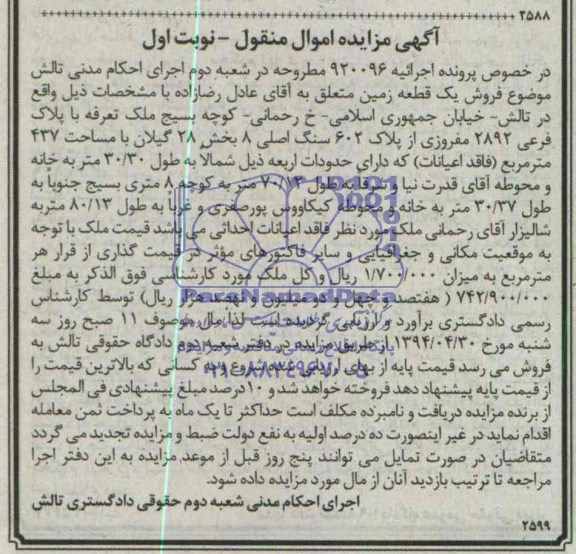 ۲۵۸۸
آگهی مزایده اموال منقول - نوبت اول
در خصوص پرونده اجرائیه ۹۲۰۰۹۶ مطروحه در شعبه دوم اجرای احکام مدنی تالش
موضوع فروش یک قطعه زمین متعلق به آقای عادل رضازاده با مشخصات ذیل واقع
در تالش- خیابان جمهوری اسلامی- خ رحمانی- کوچه بسیج ملک تعرفه با پلاک
فرعی ۲۸۹۲ مفروزی از پلاک ۶۰۲ سنگ اصلی ۸ بخش ۲۸ گیلان با مساحت ۴۳۷
مترمربع (فاقد اعیانات) که دارای حدودات اربعه ذیل شمالاً به طول ۳۰/۳۰ متر به خانه
و محوطه آقای قدرت نیا و شرقا به طول ۷۰/۱۳ متر به کوچه ۸ متری بسیج جنوباً به
طول ۳۰/۳۷ متر به خانه و محوطه کیکاووس پورصفری و غرباً به طول ۸۰/۱۳ متربه
شالیزار آقای رحمانی ملک مورد نظر فاقد اعیانات احداثی می باشد قیمت ملک با توجه
به موقعیت مکانی و جغرافیایی و سایر فاکتورهای مؤثر در قیمت گذاری از قرار هر
مترمربع به میزان ۱/۷۰۰/۰۰۰ ریال و کل ملک مورد کارشناسی فوق الذکر به مبلغ
۷۴۲/۹۰۰/۰۰۰ ( هفتصد و چهل و دو میلیون و نهصد هزار ریال) توسط کارشناس
رسمی دادگستری برآورد و ارزیابی گردیده است لذا مال موصوف ۱۱ صبح روز سه
شنبه مورخ ۱۳۹۴/۰۴/۳۰ از طریق مزایده در دفتر شعبه دوم دادگاه حقوقی تالش به
فروش می رسد قیمت پایه از بهای ارزیابی شده شروع و به کسانی که بالاترین قیمت را
از قیمت پایه پیشنهاد دهد فروخته خواهد شد و ۱۰درصد مبلغ پیشنهادی فی المجلس
از برنده مزایده دریافت و نامبرده مکلف است حداکثر تا یک ماه به پرداخت ثمن معامله
اقدام نماید در غیر اینصورت ده درصد اولیه به نفع دولت ضبط و مزایده تجدید می گردد
متقاضیان در صورت تمایل می توانند پنج روز قبل از موعد مزایده به این دفتر اجرا
مراجعه تا ترتیب بازدید آنان از مال مورد مزایده داده شود.
اجرای احکام مدنی شعبه دوم حقوقی دادگستری تالش
۲۵۹۹